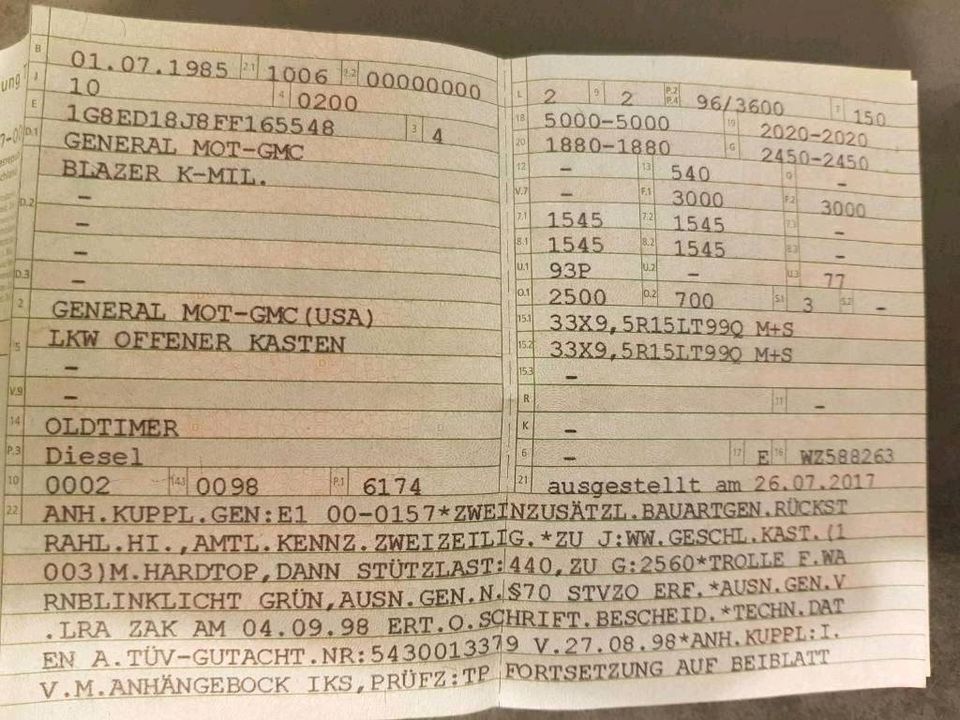 ung T
B 01.07.1985 2.1 1006 2.2 00000000
J 10 4 0200
E 1G8ED18J8FF165548 3 4
D.1 GENERAL MOT-GMC
BLAZER K-MIL.
D.2 -
-
-
D.3 -
2 GENERAL MOT-GMC(USA)
5 LKW OFFENER KASTEN
-
V.9 -
14 OLDTIMER
P.3 Diesel
10 0002 14.1 0098 P.1 6174
L 2 9 2 P.2 P.4 96/3600 T 150
18 5000-5000 19 2020-2020
20 1880-1880 G 2450-2450
12 - 13 540 Q -
V.7 - F.1 3000 F.2 3000
7.1 1545 7.2 1545 7.3 -
8.1 1545 8.2 1545 8.3 -
U.1 93P U.2 - U.3 77
O.1 2500 O.2 700 S.1 3 S.2 -
15.1 33X9,5R15LT99Q M+S
15.2 33X9,5R15LT99Q M+S
15.3 -
R 11 -
K -
6 - 17 E 16 WZ588263
21 ausgestellt am 26.07.2017
22 ANH.KUPPL.GEN:E1 00-0157*ZWEINZUSÄTZL.BAUARTGEN.RÜCKST
RAHL.HI.,AMTL.KENNZ.ZWEIZEILIG.*ZU J:WW.GESCHL.KAST.(1
003)M.HARDTOP,DANN STÜTZLAST:440,ZU G:2560*TROLLE F.WA
RNBLINKLICHT GRÜN,AUSN.GEN.N.§70 STVZO ERF.*AUSN.GEN.V
.LRA ZAK AM 04.09.98 ERT.O.SCHRIFT.BESCHEID.*TECHN.DAT
EN A.TÜV-GUTACHT.NR:5430013379 V.27.08.98*ANH.KUPPL:I.
V.M.ANHÄNGEBOCK IKS,PRÜFZ:TP FORTSETZUNG AUF BEIBLATT